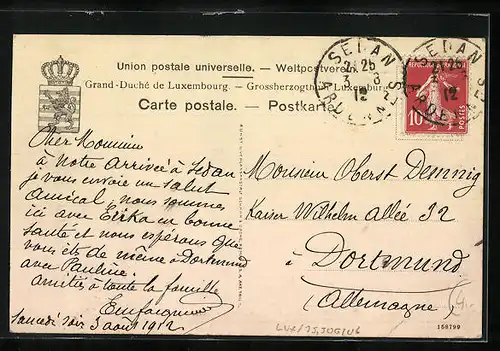 Union postale universelle. — Weltpostverein.
Grand-Duché de Luxembourg. — Grossherzogthum Luxemburg.
Carte postale. — Postkarte.
SEDAN
21 25
3 8
12
ARDENNES
SEDAN
ARDENNES
12
10
POSTES
Cher Monsieur
à notre arrivée à Sedan
je vous envoie un salut
amical, nous sommes
ici avec Erika en bonne
santé et nous espérons que
vous êts de même à Dortmund
avec Pauline.
Amitiés à toute la famille
Samedi soir 3 août 1912
Monsieur Oberst Demnig
Kaiser Wilhelm allée 32
à Dortmund
(Allemagne)
158799